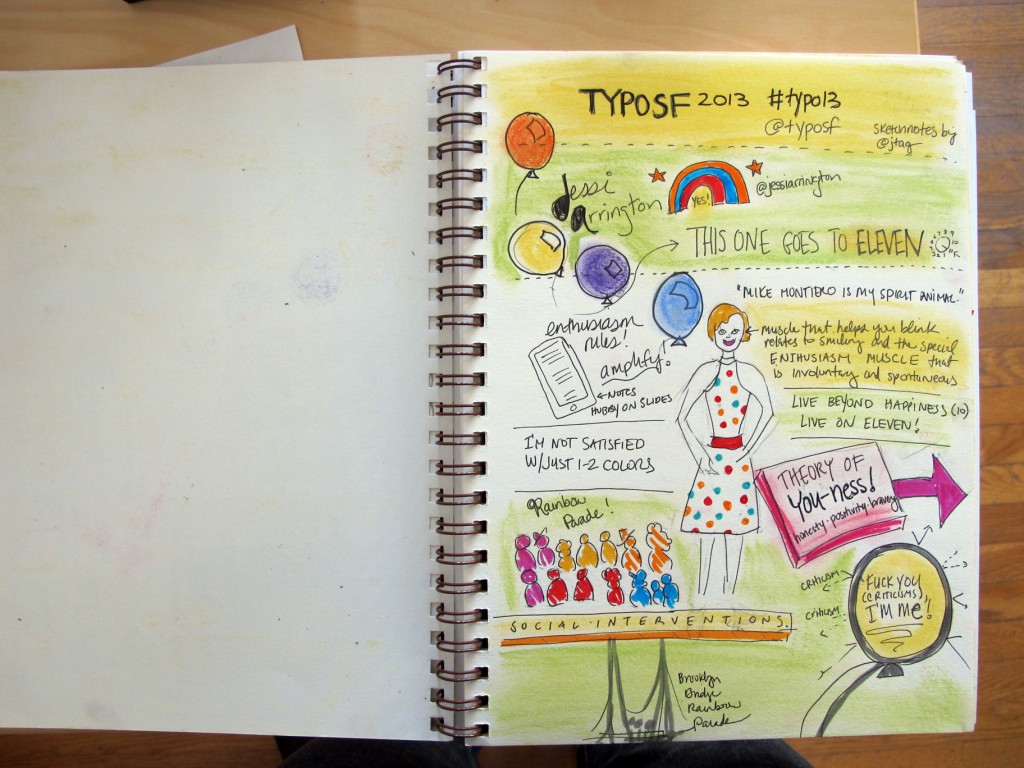 TYPOSF 2013 #typo13
@typosf
sketchnotes by
@jtag
Jessi
Arrington
YES!
@jessiarrington
THIS ONE GOES TO ELEVEN
"MIKE MONTIERO IS MY SPIRIT ANIMAL."
enthusiasm
rules!
amplify!
←NOTES
HUBBY ON SLIDES
muscle that helps you blink
relates to smiling and the special
ENTHUSIASM MUSCLE that
is involuntary and spontaneous
LIVE BEYOND HAPPINESS (10)
LIVE ON ELEVEN!
I'M NOT SATISFIED
W/JUST 1-2 COLORS
THEORY OF
YOU-NESS!
honesty·positivity·bravery
Rainbow
Parade!
CRITICISM
criticism
FUCK YOU
(CRITICISMS),
I'M ME!
SOCIAL·INTERVENTIONS.
Brooklyn
Bridge
Rainbow
Parade